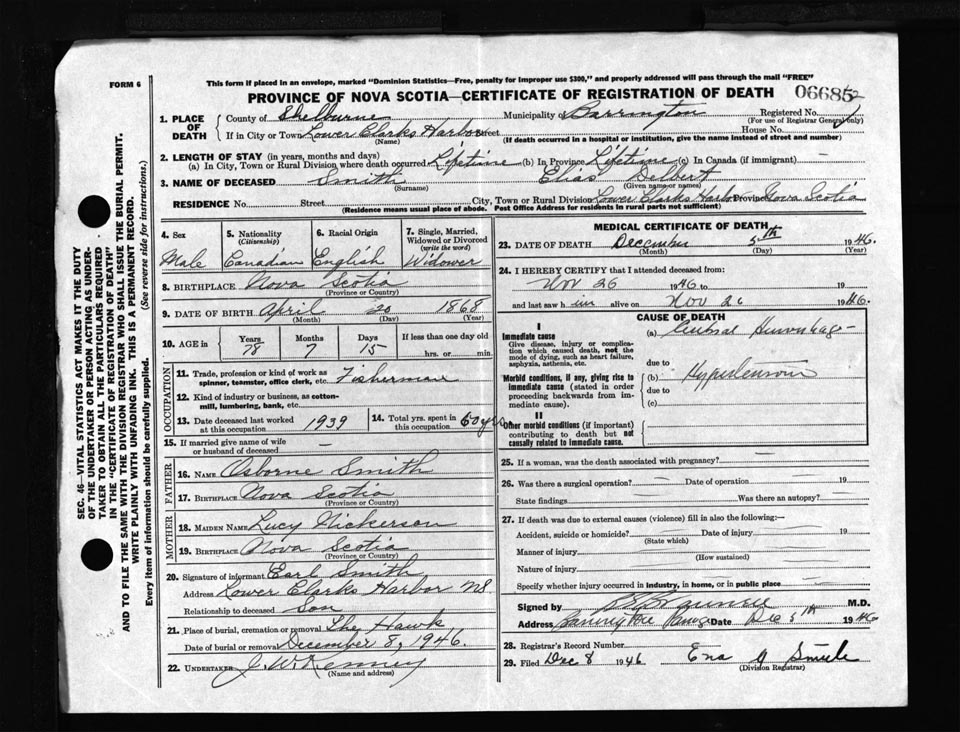 FORM 6
This form if placed in an envelope, marked "Dominion Statistics—Free, penalty for improper use $300," and properly addressed will pass through the mail "FREE"
PROVINCE OF NOVA SCOTIA—CERTIFICATE OF REGISTRATION OF DEATH
06685
1. PLACE OF DEATH
County of Shelburne Municipality of Barrington Registered No.
(For use of Registrar General only)
If in City or Town Lower Clarks Harbor Street House No.
(Name) (If death occurred in a hospital or institution, give the name instead of street and number)
2. LENGTH OF STAY (in years, months and days)
(a) In City, Town or Rural Division where death occurred Lifetime (b) In Province Lifetime (c) In Canada (if immigrant) —
3. NAME OF DECEASED Smith Elias Delbert
(Surname) (Given name or names)
RESIDENCE No. Street City, Town or Rural Division Lower Clarks Harbor Province Nova Scotia
(Residence means usual place of abode. Post Office Address for residents in rural parts not sufficient)
4. Sex Male
5. Nationality (Citizenship) Canadian
6. Racial Origin English
7. Single, Married, Widowed or Divorced (write the word) Widower
8. BIRTHPLACE Nova Scotia
(Province or Country)
9. DATE OF BIRTH April 20 1868
(Month) (Day) (Year)
10. AGE in Years 78 Months 7 Days 15 If less than one day old hrs. or min.
OCCUPATION
11. Trade, profession or kind of work as spinner, teamster, office clerk, etc. Fisherman
12. Kind of industry or business, as cotton-mill, lumbering, bank, etc.
13. Date deceased last worked at this occupation 1939
14. Total yrs. spent in this occupation 60 yrs
15. If married give name of wife or husband —
FATHER
16. NAME Osborne Smith
17. BIRTHPLACE Nova Scotia
(Province or Country)
MOTHER
18. MAIDEN NAME Lucy Nickerson
19. BIRTHPLACE Nova Scotia
(Province or Country)
20. Signature of informant Earl Smith
Address Lower Clarks Harbor NS
Relationship to deceased Son
21. Place of burial, cremation or removal The Hawk
Date of burial or removal December 8, 1946.
22. UNDERTAKER J. W. Kenney
(Name and address)
MEDICAL CERTIFICATE OF DEATH
23. DATE OF DEATH December 5th 1946.
(Month) (Day) (Year)
24. I HEREBY CERTIFY that I attended deceased from:
Nov 26 1946 to 19
and last saw him alive on Nov 26 1946.
CAUSE OF DEATH
I
Immediate cause
Give disease, injury or complication which caused death, not the mode of dying, such as heart failure, asphyxia, asthenia, etc.
(a) Cerebral Hemorrhage
due to
Morbid conditions, if any, giving rise to immediate cause (stated in order proceeding backwards from immediate cause).
(b) Hypertension
due to
(c)
II
Other morbid conditions (if important) contributing to death but not causally related to immediate cause.
25. If a woman, was the death associated with pregnancy? —
26. Was there a surgical operation? — Date of operation — 19
State findings Was there an autopsy? —
27. If death was due to external causes (violence) fill in also the following:—
Accident, suicide or homicide? Date of injury 19
(State which)
Manner of injury
(How sustained)
Nature of injury
Specify whether injury occurred in industry, in home, or in public place
Signed by M.D.
Address Date Dec 5th 1946
28. Registrar's Record Number
29. Filed Dec 8 1946
(Division Registrar)
SEC. 46—VITAL STATISTICS ACT MAKES IT THE DUTY
OF THE UNDERTAKER OR PERSON ACTING AS UNDER-
TAKER TO OBTAIN ALL THE PARTICULARS REQUIRED
IN THE "CERTIFICATE OF REGISTRATION OF DEATH"
AND TO FILE THE SAME WITH THE DIVISION REGISTRAR WHO SHALL ISSUE THE BURIAL PERMIT.
WRITE PLAINLY WITH UNFADING INK. THIS IS A PERMANENT RECORD.
Every item of information should be carefully supplied. (See reverse side for instructions.)